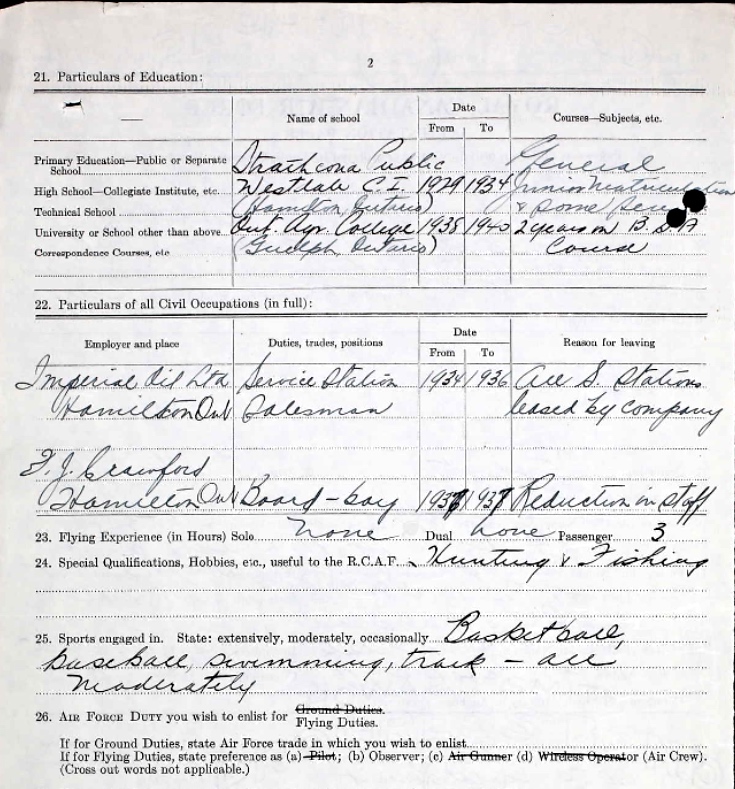 2
21. Particulars of Education:
Name of school
Date
From To
Courses—Subjects, etc.
Primary Education—Public or Separate School Strathcona Public General
High School—Collegiate Institute, etc. Westdale C.I. 1929 1934 Junior Matriculation
Technical School (Hamilton, Ontario) & some
University or School other than above Ont. Agr. College 1938 1940 2 years in B.S.A
Correspondence Courses, etc (Guelph, Ontario) Course
22. Particulars of all Civil Occupations (in full):
Employer and place
Duties, trades, positions
Date
From To
Reason for leaving
Imperial Oil Ltd Service Station 1934 1936 All S. Stations
Hamilton Ont Salesman leased by company
F. J. Crawford
Hamilton Ont Board-boy 1937 1937 Reduction in staff
23. Flying Experience (in Hours) Solo none Dual none Passenger 3
24. Special Qualifications, Hobbies, etc., useful to the R.C.A.F. Hunting & Fishing
25. Sports engaged in. State: extensively, moderately, occasionally Basketball,
baseball, swimming, track - all
moderately
26. AIR FORCE DUTY you wish to enlist for Ground Duties.
Flying Duties.
If for Ground Duties, state Air Force trade in which you wish to enlist
If for Flying Duties, state preference as (a) Pilot; (b) Observer; (c) Air Gunner (d) Wireless Operator (Air Crew).
(Cross out words not applicable.)